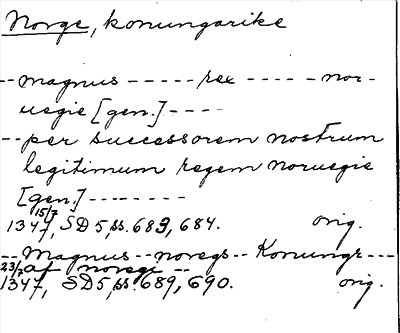 Norge, konungarike
-- magnus ----- rex ----- nor-
uegie [gen.] ----
-- per successorem nostrum
legitimum regem noruegie
[gen.] --------
15/7
1347, SD 5, ss. 683, 684. orig.
-- Magnus -- noregs -- Konungr ---
23/7 af noregi --
1347, SD 5, ss. 689, 690. orig.